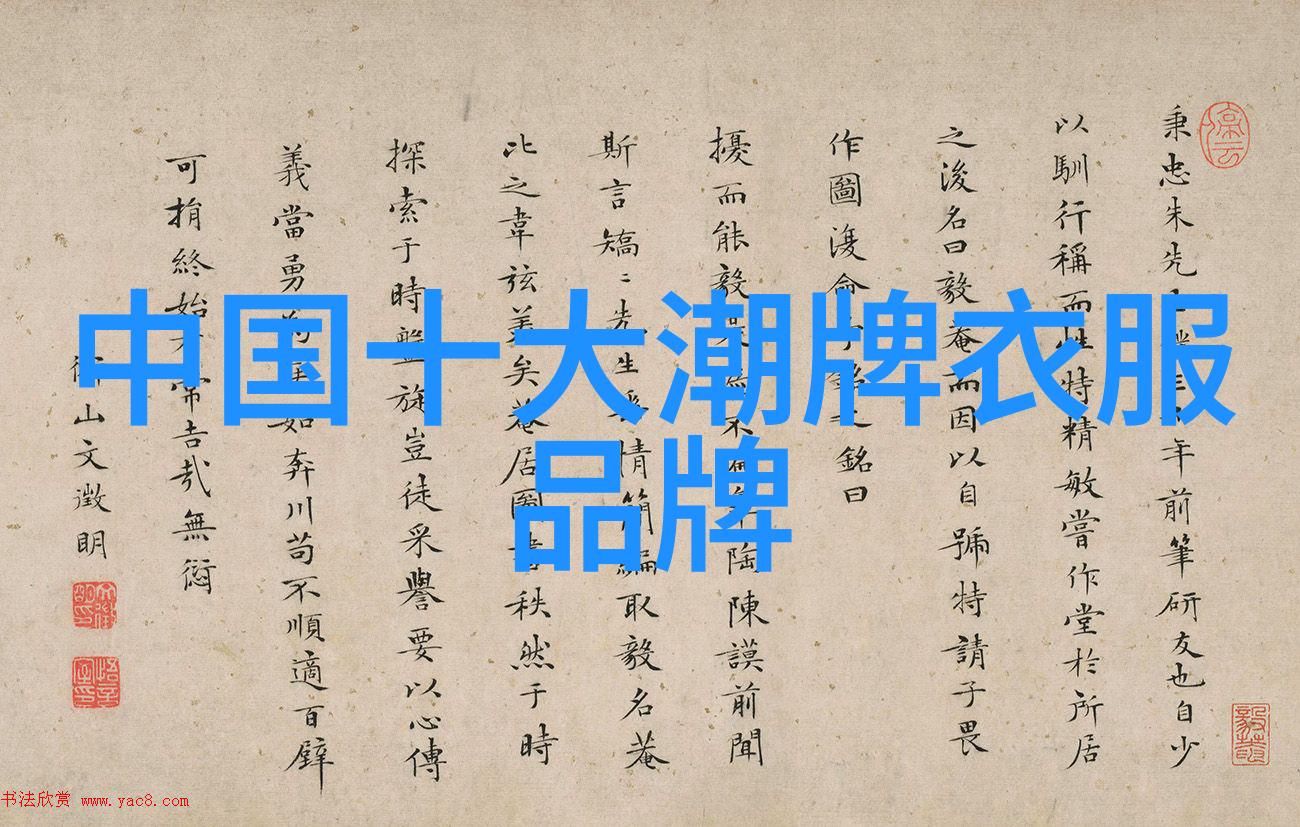 中国十大潮牌衣服
品牌
停云
秉忠朱先年前筆研友也自少
以馴行稱而性特精敏嘗作堂於所居
之後名曰毅菴而因以自號特請子畏
作圖復命銘曰
擾而能毅不陶陳謨前聞
斯言矯〻先生情簡編取毅名菴
比之韋弦美矣菴居圖書秩然于時
探索于時盤旋豈徒采譽要以心傳
義當勇為如奔川苟不順適百辟
可捐終始常吉哉無愆
衡山文徵明
毅菴
书法欣赏 www.yac8.com